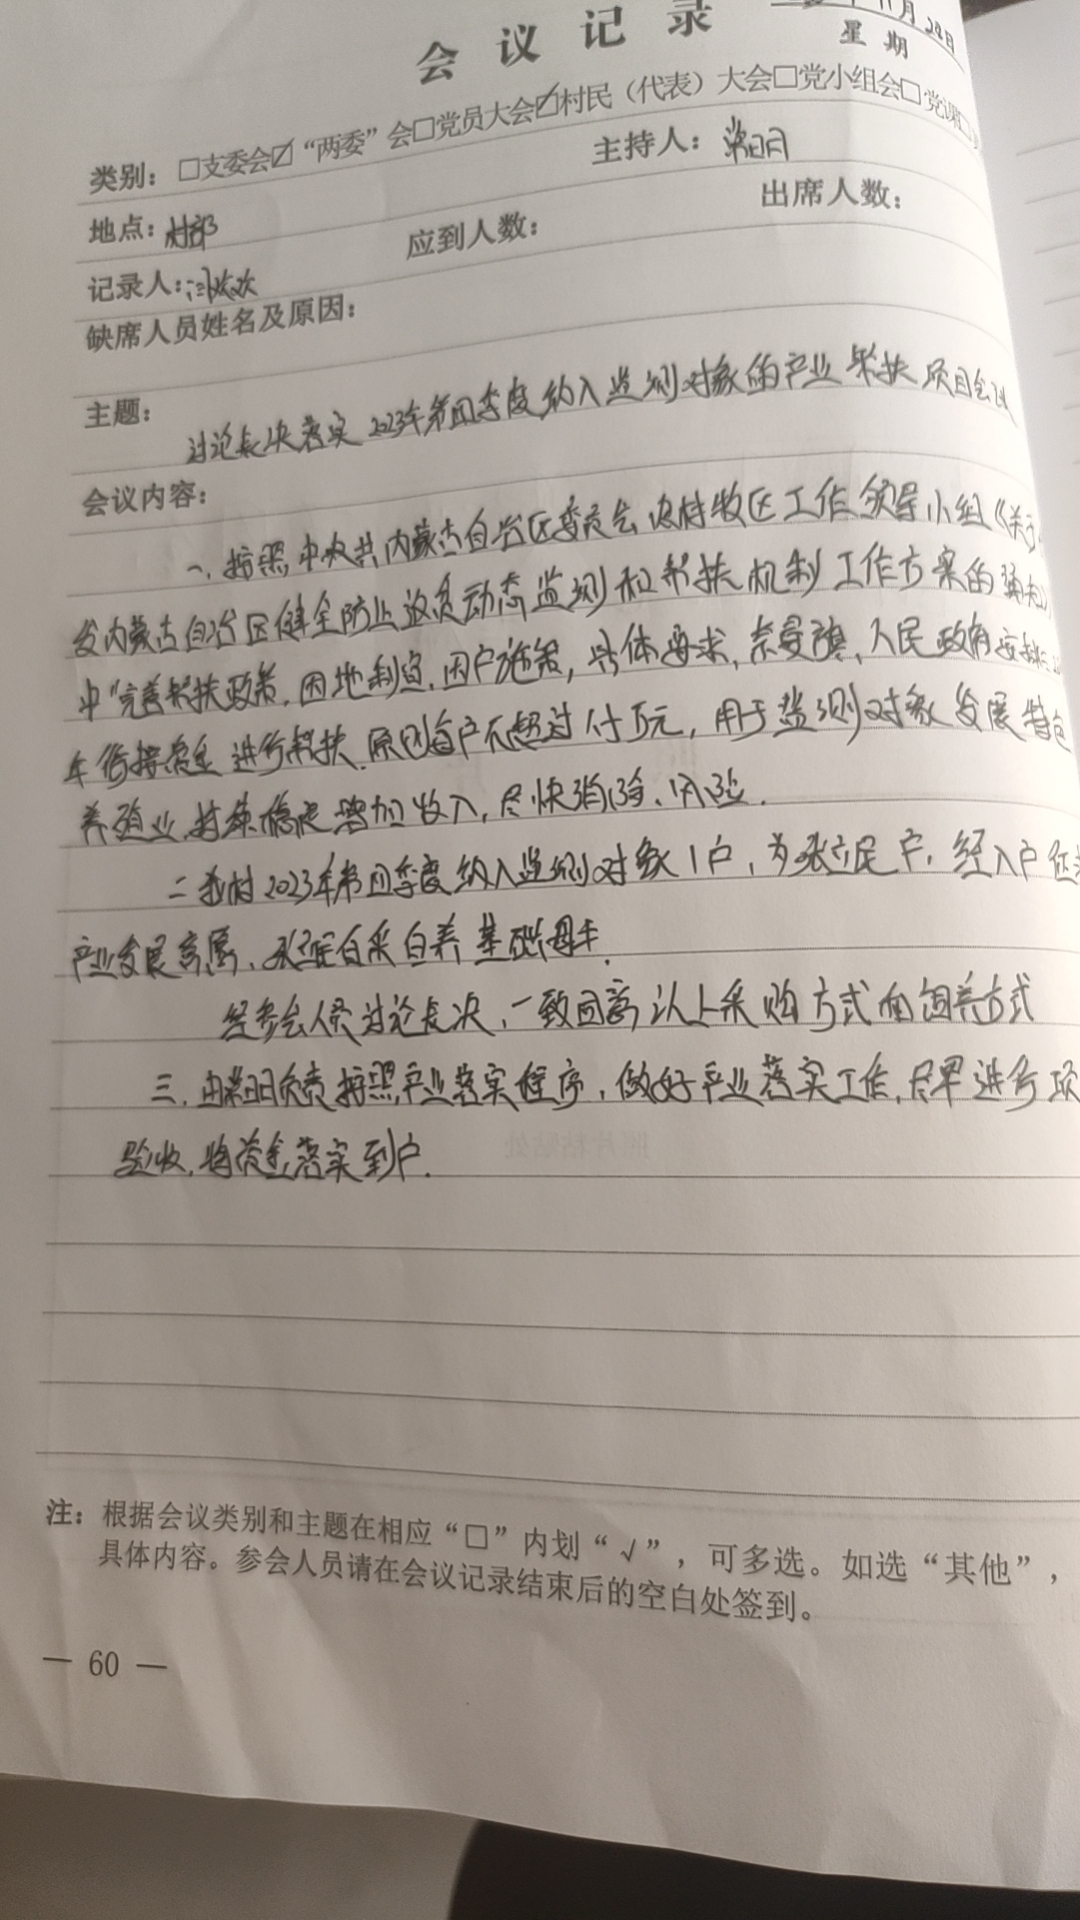 会议记录
11月28日
星期
类别：□支委会☑“两委”会□党员大会☑村民（代表）大会□党小组会□党课□
地点：村部 主持人：
记录人： 应到人数： 出席人数：
缺席人员姓名及原因：
主题：
讨论表决落实2023年第四季度纳入监测对象的产业帮扶项目会议
会议内容：
一、按照中共内蒙古自治区委员会农村牧区工作领导小组《关于
发内蒙古自治区健全防止返贫动态监测和帮扶机制工作方案的通知》
中“完善帮扶政策，因地制宜，因户施策，具体要求，奈曼旗、人民政府安排
年衔接资金进行帮扶，原则每户不超过 万元，用于监测对象发展特色
养殖业，持续稳定增加收入，尽快消除、风险．
二 我村2023年第四季度纳入监测对象1户，为张立民户．经入户征求
产业发展意愿、 自采自养基础母牛．
经参会人员讨论表决，一致同意以上采购方式和饲养方式
三．由 负责按照产业落实程序，做好产业落实工作，尽早进行项
验收，将资金落实到户．
注：根据会议类别和主题在相应“□”内划“√”，可多选。如选“其他”，
具体内容。参会人员请在会议记录结束后的空白处签到。
— 60 —